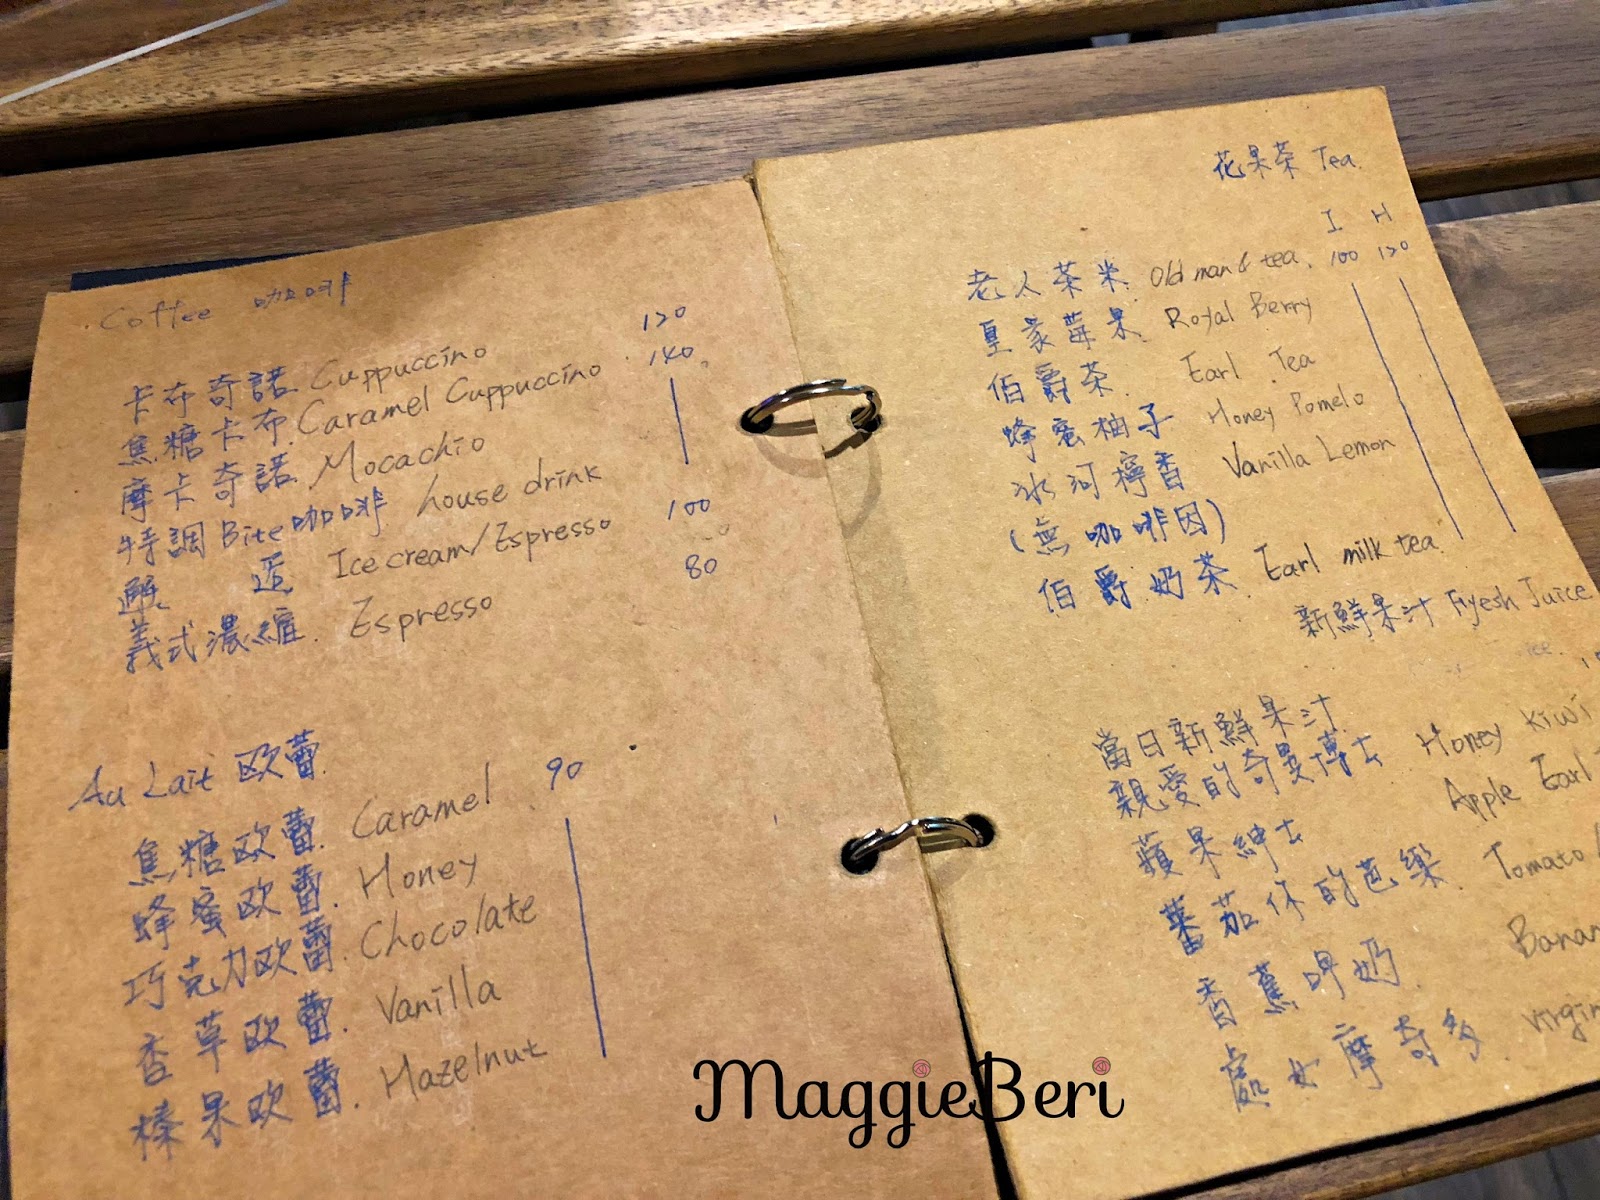 Coffee 咖啡
卡布奇諾. Cuppuccino 120
焦糖卡布. Caramel Cuppuccino 140
摩卡奇諾. Mocachio
特調Bite咖啡 house drink
邂逅 Ice cream/Espresso 100
義式濃縮. Espresso 80
Au Lait 歐蕾
焦糖歐蕾. Caramel 90
蜂蜜歐蕾. Honey
巧克力歐蕾. Chocolate
香草歐蕾. Vanilla
榛果歐蕾. Hazelnut
花果茶 Tea.
I H
老人茶米. Old man & tea. 100 120
皇家莓果. Royal Berry
伯爵茶. Earl Tea
蜂蜜柚子 Honey Pomelo
冰河檸香 Vanilla Lemon
(無咖啡因)
伯爵奶茶. Earl milk tea
新鮮果汁 Fryesh Juice
當日新鮮果汁
親愛的奇異博士 Honey Kiwi
蘋果紳士 Apple Earl
蕃茄你的芭樂. Tomato
香蕉呷奶.
處女摩奇多.
MaggieBeri